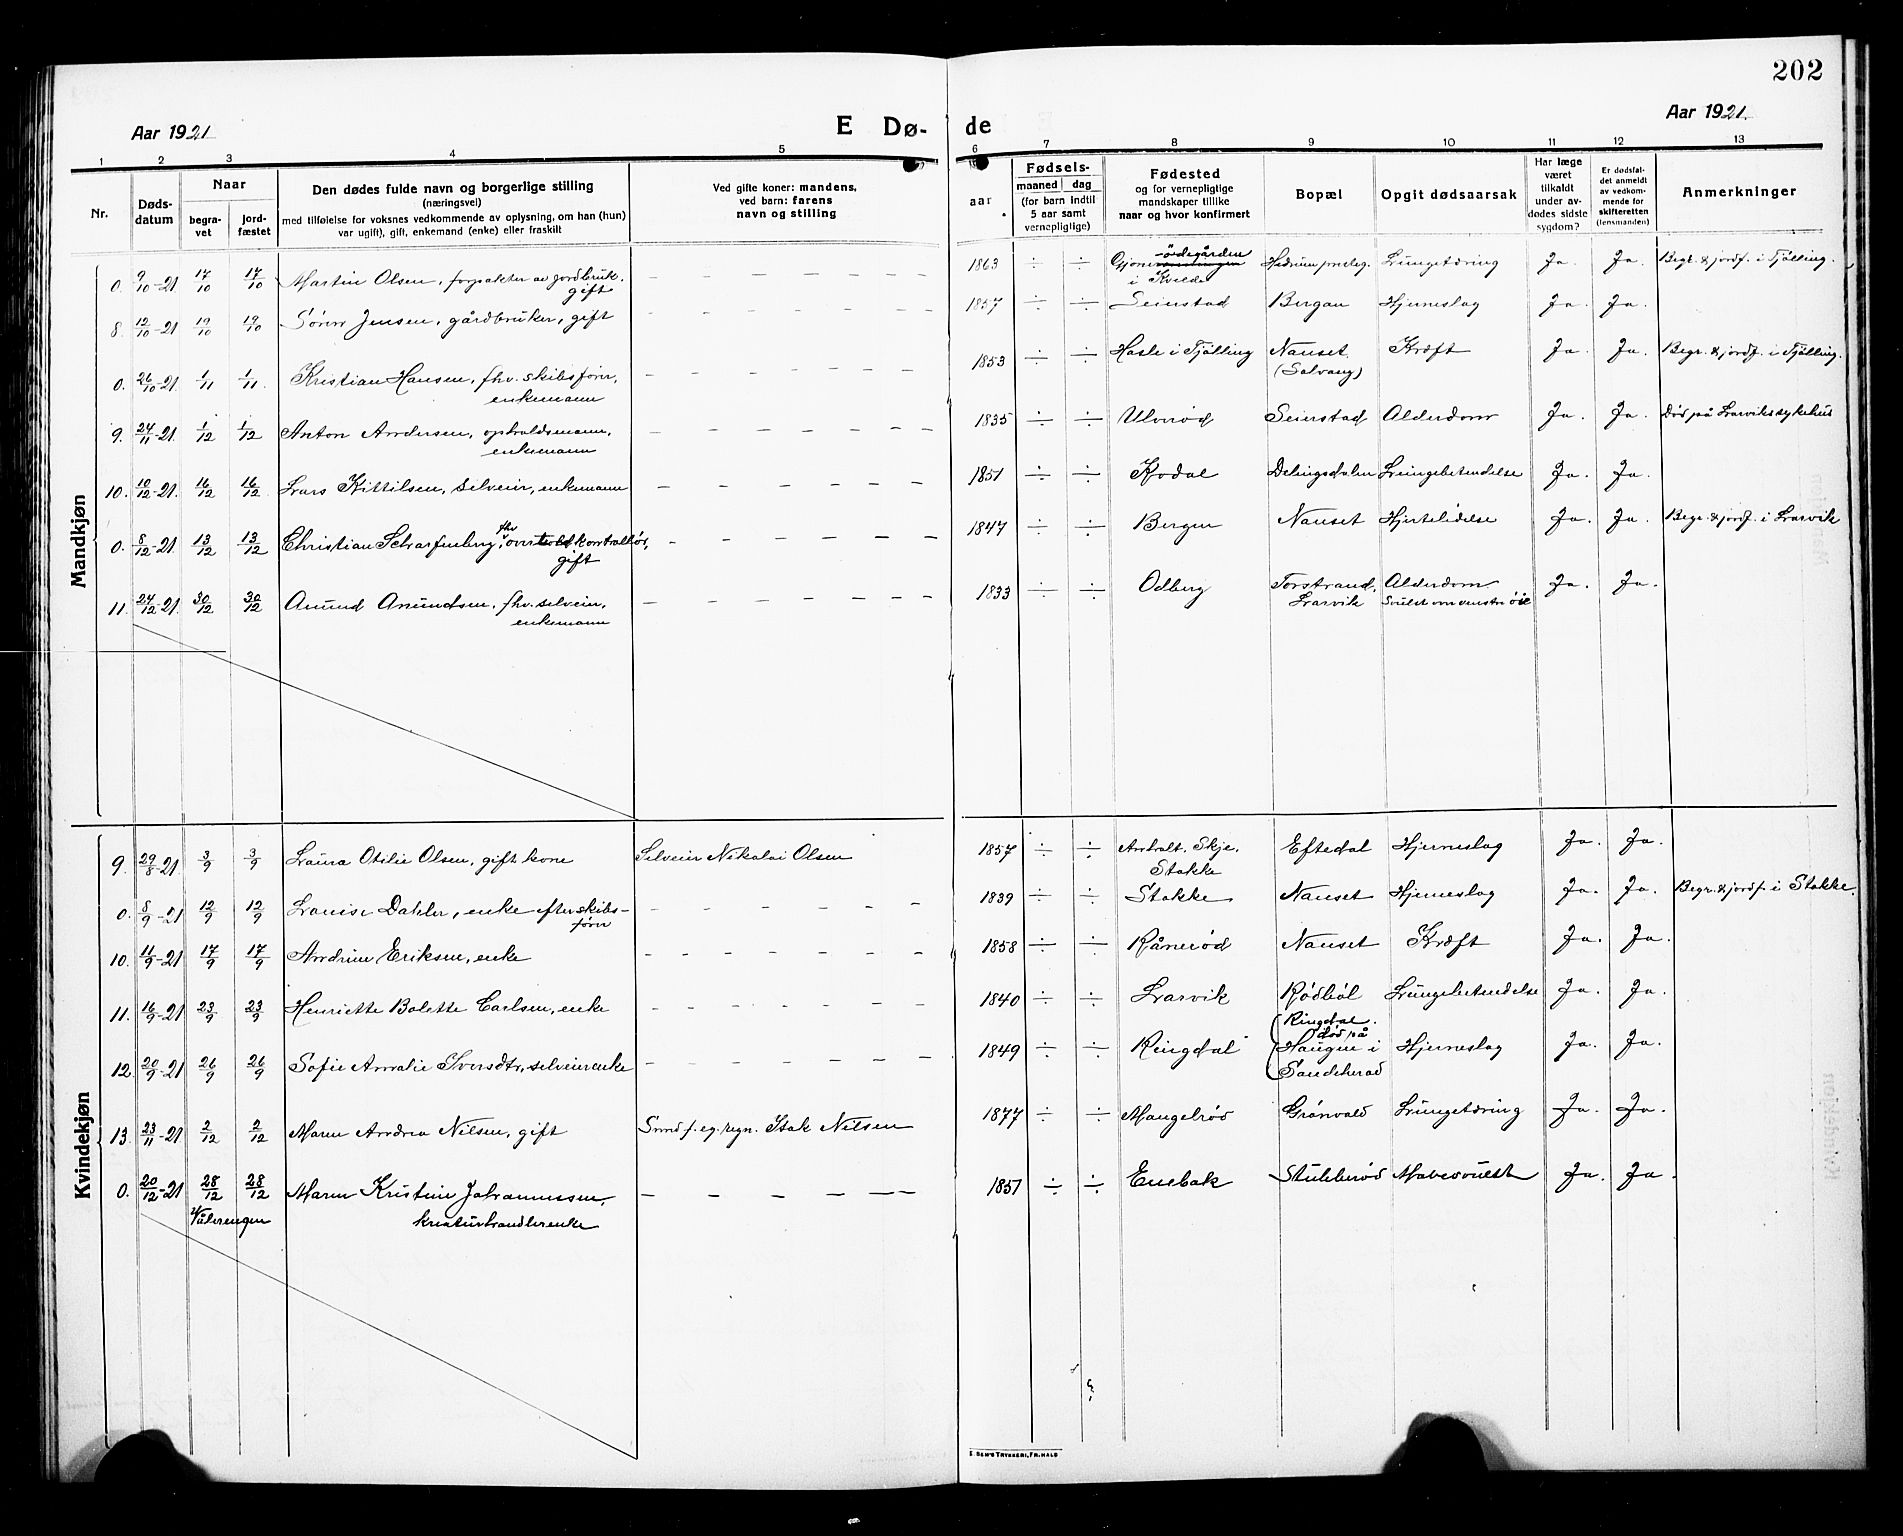 202
Aar 1921
E Dø-
de
Aar 1921.
1 2 3 4 5 6 7 8 9 10 11 12 13
Nr.
Dødsdatum
Naar
begravet
jordfæstet
Den dødes fulde navn og borgerlige stilling
(næringsvei)
med tilføielse for voksnes vedkommende av oplysning, om han (hun)
var ugift), gift, enkemand (enke) eller fraskilt
Ved gifte koner: mandens,
ved barn: farens
navn og stilling
aar
Fødsels-
maaned dag
(for barn indtil
5 aar samt
vernepligtige)
Fødested
og for vernepligtige
mandskaper tillike
naar og hvor konfirmert
Bopæl
Opgit dødsaarsak
Har læge
været
tilkaldt
under av-
dødes sidste
sygdom?
Er dødsfal-
det anmeldt
av vedkom-
mende for
skifteretten
(lensmanden)
Anmerkninger
Mandkjøn
0. 9/10-21 17/10 17/10 Martin Olsen, forpakter av jordbruk, gift – – – – – – – 1863 ÷ ÷ -ödegården i Kvelde Hedrum presteg. Lungetæring Ja. Ja. Begr. & jordf. i Tjölling.
8. 12/10-21 19/10 19/10 Sören Jensen, gårdbruker, gift – – – – – – – 1857 ÷ ÷ Seierstad Bergan Hjerneslag Ja. Ja.
0. 26/10-21 1/11 1/11 Kristian Hansen, fhv. skibsfører, enkemann – – – – – – – 1853 ÷ ÷ Hasle i Tjölling Nanset (Solvang) Kræft Ja. Ja. Begr. & jordf. i Tjölling.
9. 24/11-21 1/12 1/12 Anton Andersen, opholdsmann, enkemann – – – – – – – 1835 ÷ ÷ Ulvröd Seierstad Alderdom Ja. Ja. Död på Larvik sykehus
10. 10/12-21 16/12 16/12 Lars Kittilsen, selveier, enkemann – – – – – – 1851 ÷ ÷ Kodal Delingsdalen Lungebetendelse Ja. Ja.
0. 8/12-21 13/12 13/12 Christian Scharfenberg, fhv. overtoldkontrollør, gift – – – – – – 1847 ÷ ÷ Bergen Nanset Hjertelidelse Ja. Ja. Begr. & jordf. i Larvik
11. 24/12-21 30/12 30/12 Anund Anundsen, fhv. selveier, enkemann – – – – – – – 1833 ÷ ÷ Odberg Torstrand, Larvik Alderdom Svulst over venstre öie Ja. Ja.
Kvindekjøn
9. 29/8-21 3/9 3/9 Laura Otilie Olsen, gift kone Selveier Nikolai Olsen 1857 ÷ ÷ Skje, Stokke Eftedal Hjerneslag Ja. Ja.
0. 8/9-21 12/9 12/9 Lovise Dahler, enke efter skibsfører – – – – – – 1839 ÷ ÷ Stokke Nanset Hjerneslag Ja. Ja. Begr. & jordf. i Stokke.
10. 11/9-21 17/9 17/9 Andrine Eriksen, enke – – – – – – – 1858 ÷ ÷ Råneröd Nanset Kræft Ja. Ja.
11. 16/9-21 23/9 23/9 Henriette Bolette Carlsen, enke – – – – – – 1840 ÷ ÷ Larvik Rödböl Lungebetendelse Ja. Ja.
12. 20/9-21 26/9 26/9 Sofie Amalie Iversdtr., selveierenke – – – – – – – 1849 ÷ ÷ Ringdal Ringdal. död på Haugen i Sandeherad Hjerneslag Ja. Ja.
13. 23/11-21 2/12 2/12 Maren Andrea Nilsen, gift Smed f. eg. regn. Isak Nilsen 1877 ÷ ÷ Mangelröd Grönvold Lungetæring Ja. Ja.
0. 20/12-21 28/12 28/12 Vålerengen Maren Kristine Johannessen, kreaturhandlerenke – – – – – – 1851 ÷ ÷ Enebak Stubberöd Mavesvulst Ja. Ja.